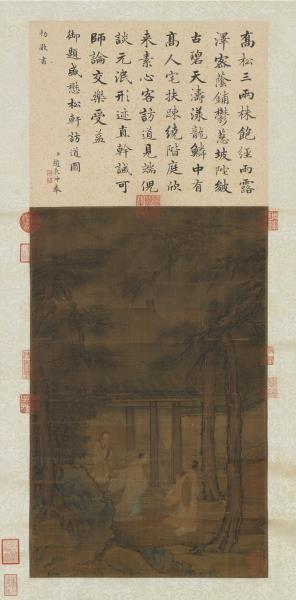 喬松三兩林飽經雨露
澤密蔭鋪鬱葱坡陀皴
古碧天濤漾龍鱗中有
髙人宅扶疎繞階庭欣
来素心客訪道見端倪
談元泯形迹直幹誠可
師論交樂受益
御題盛懋松軒訪道圖
臣趙秉冲奉
勅敬書